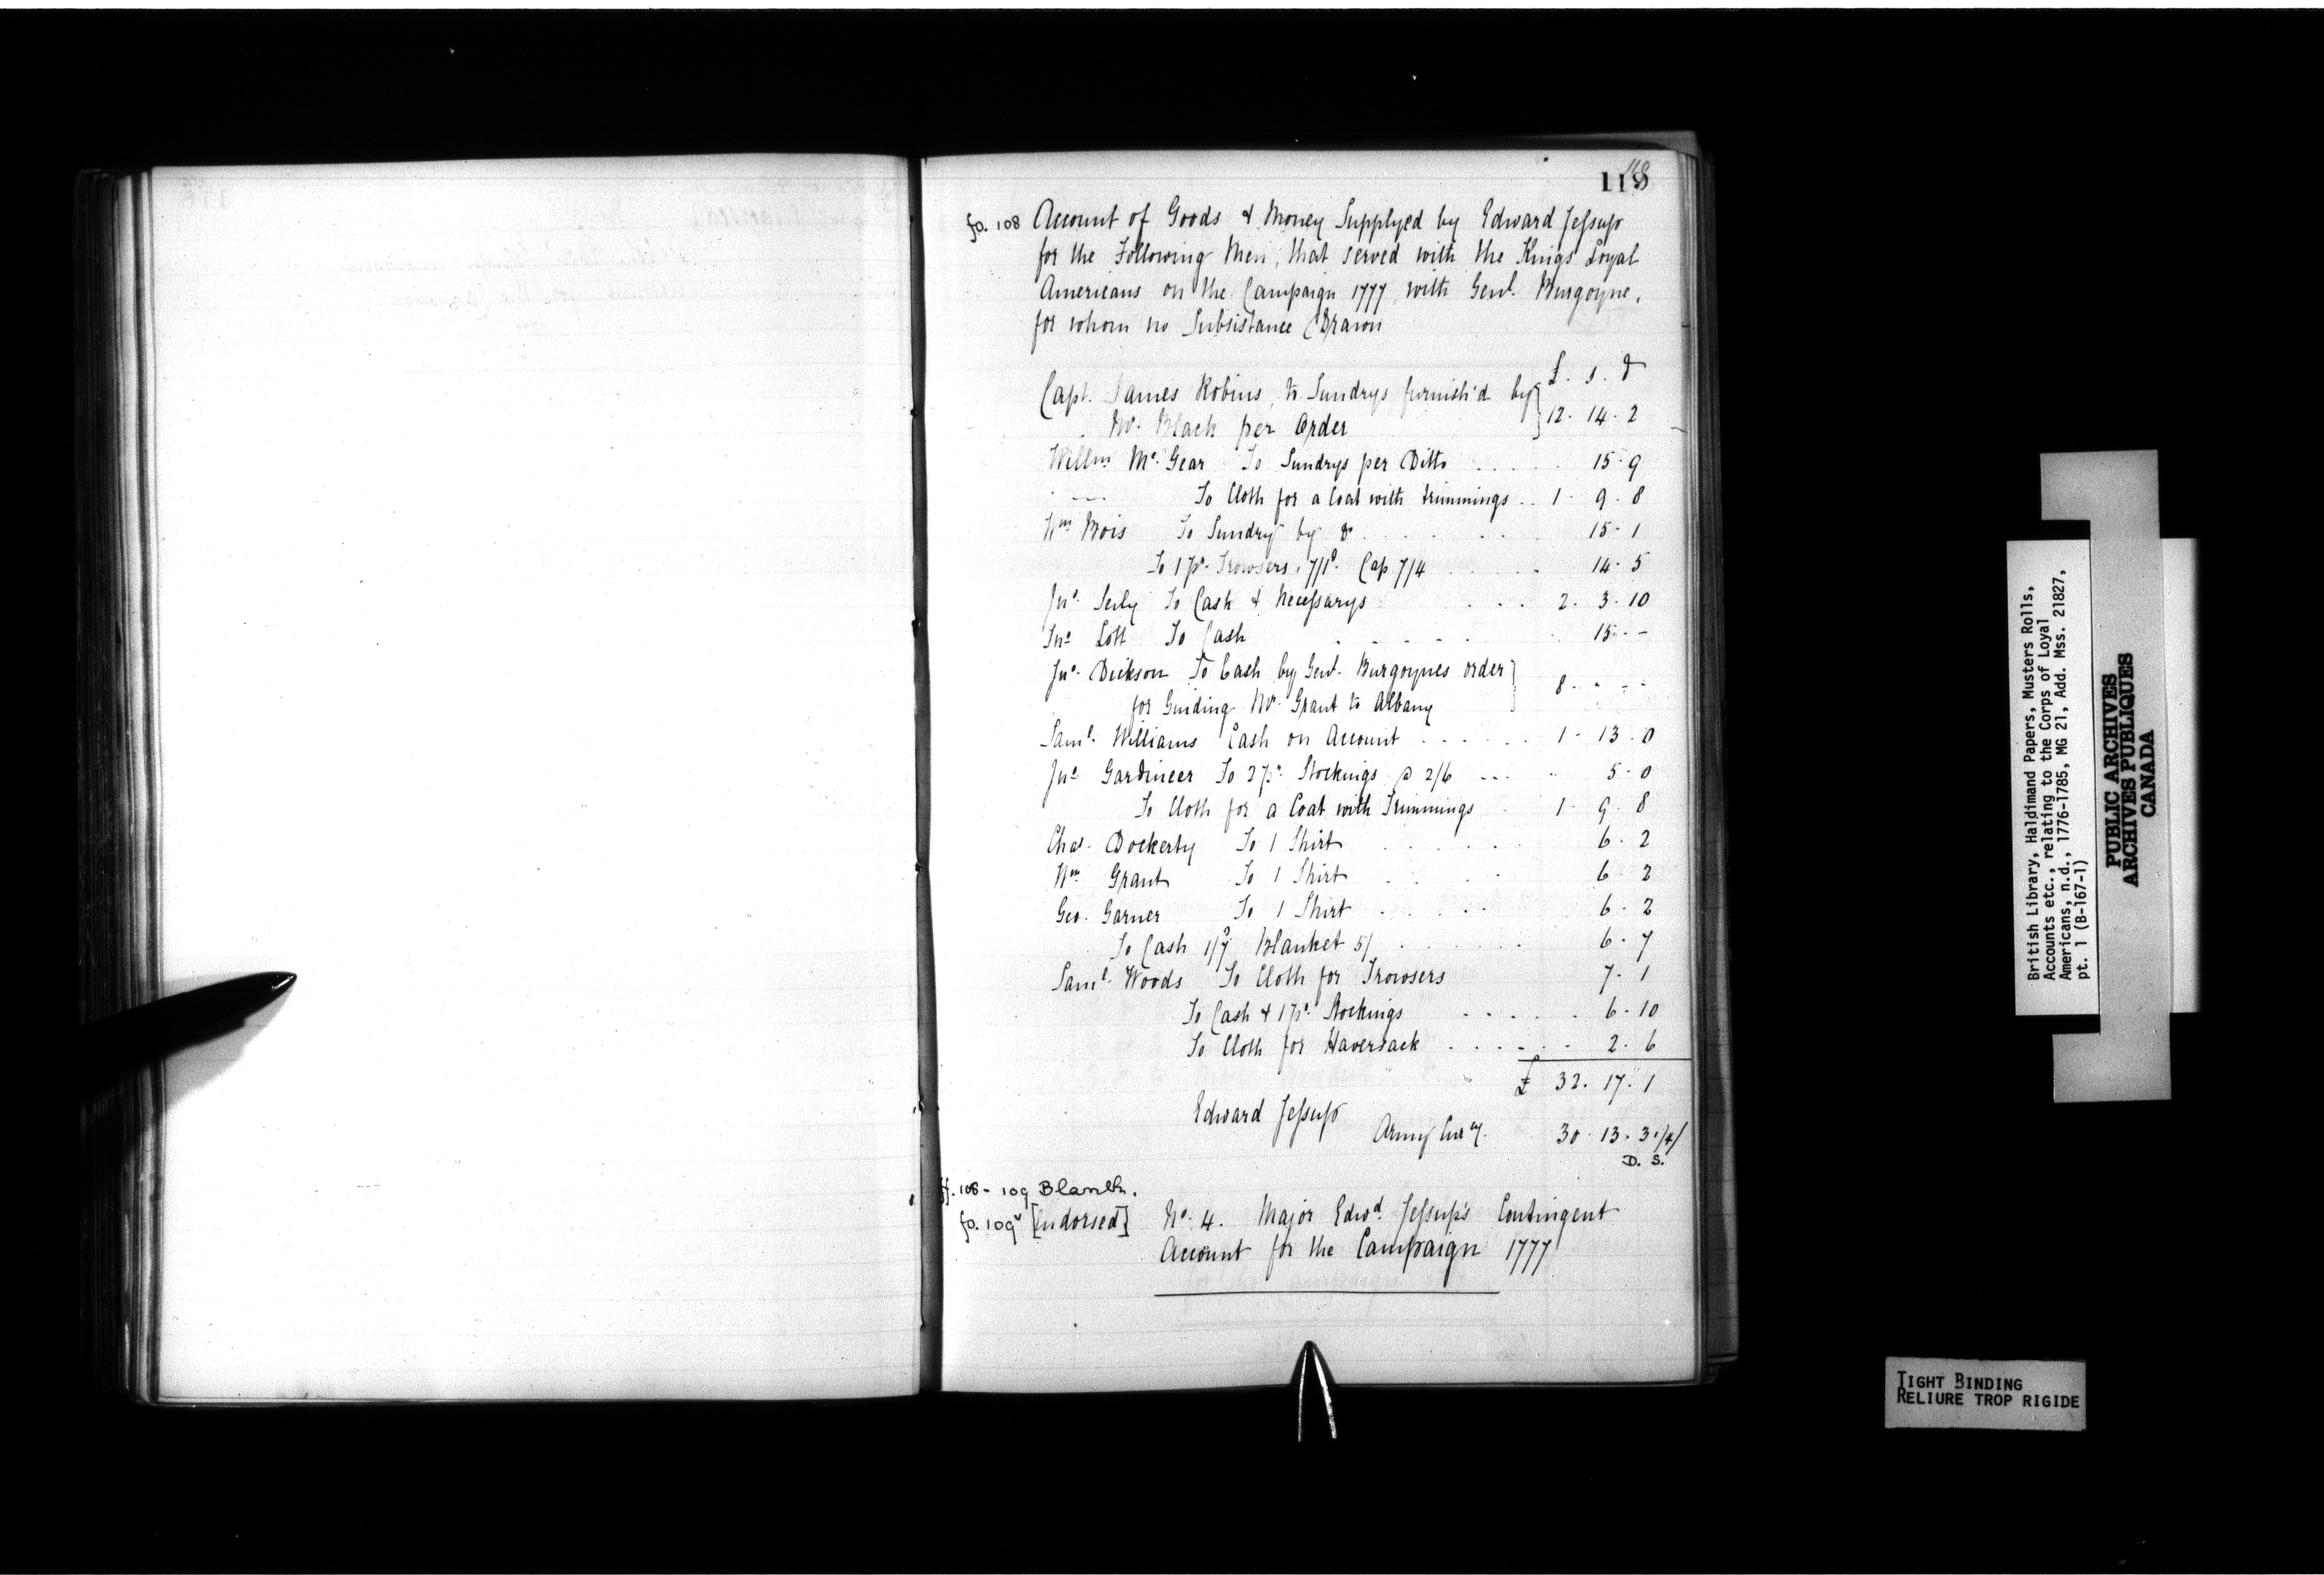 119
168
fo. 108 Account of Goods & Money Supplyed by Edward Jessup
for the Following Men, that served with the Kings Loyal
Americans on the Campaign 1777, with Genl. Burgoyne,
for whom no Subsistance Drawn
£. s. d
Capt. James Robins, to Sundrys furnish'd by
Mr. Black per Order } 12. 14. 2
Willm Mc. Gear To Sundrys per Ditto . . . . . 15. 9
To Cloth for a Coat with trimmings . . 1. 9. 8
Wm Bois To Sundry by Do . . . . . . 15. 1
To 1 pr. Trowsers, 7/1d. Cap 7/4 . . . . . 14. 5
Jno. Seily To Cash & Necessarys . . . 2. 3. 10
Jno Lott To Cash . . . . . 15. -
Jno. Dickson To Cash by Genl. Burgoynes order
for Guiding Mr. Grant to Albany } 8. - - -
Saml. Williams Cash on Account . . . . . . 1. 13. 0
Jno. Gardineer To 2 pr. Stockings @ 2/6 --- " 5. 0
To Cloth for a Coat with Trimmings . 1. 9. 8
Chas. Dockerty To 1 Shirt . . . . . . 6. 2
Wm Grant To 1 Shirt . . . . 6 2
Geo. Garner To 1 Shirt . . . . . 6. 2
To Cash 1/7d Blanket 5/ . . . . . . 6. 7
Saml. Woods To Cloth for Trowsers 7. 1
To Cash & 1 pr. Stockings . . . . . 6. 10
To Cloth for Haversack . . . - . - 2. 6
£ 32. 17. 1
Edward Jessup
Army Curcy. 30. 13. 3. 1/4
D. S.
ff. 108 - 109 Blank.
fo. 109v [Endorsed] No. 4. Major Edwd. Jessup's Contingent
Account for the Campaign 1777
British Library, Haldimand Papers, Musters Rolls,
Accounts etc., relating to the Corps of Loyal
Americans, n.d., 1776-1785, MG 21, Add. Mss. 21827,
pt. 1 (B-167-1)
PUBLIC ARCHIVES
ARCHIVES PUBLIQUES
CANADA
TIGHT BINDING
RELIURE TROP RIGIDE